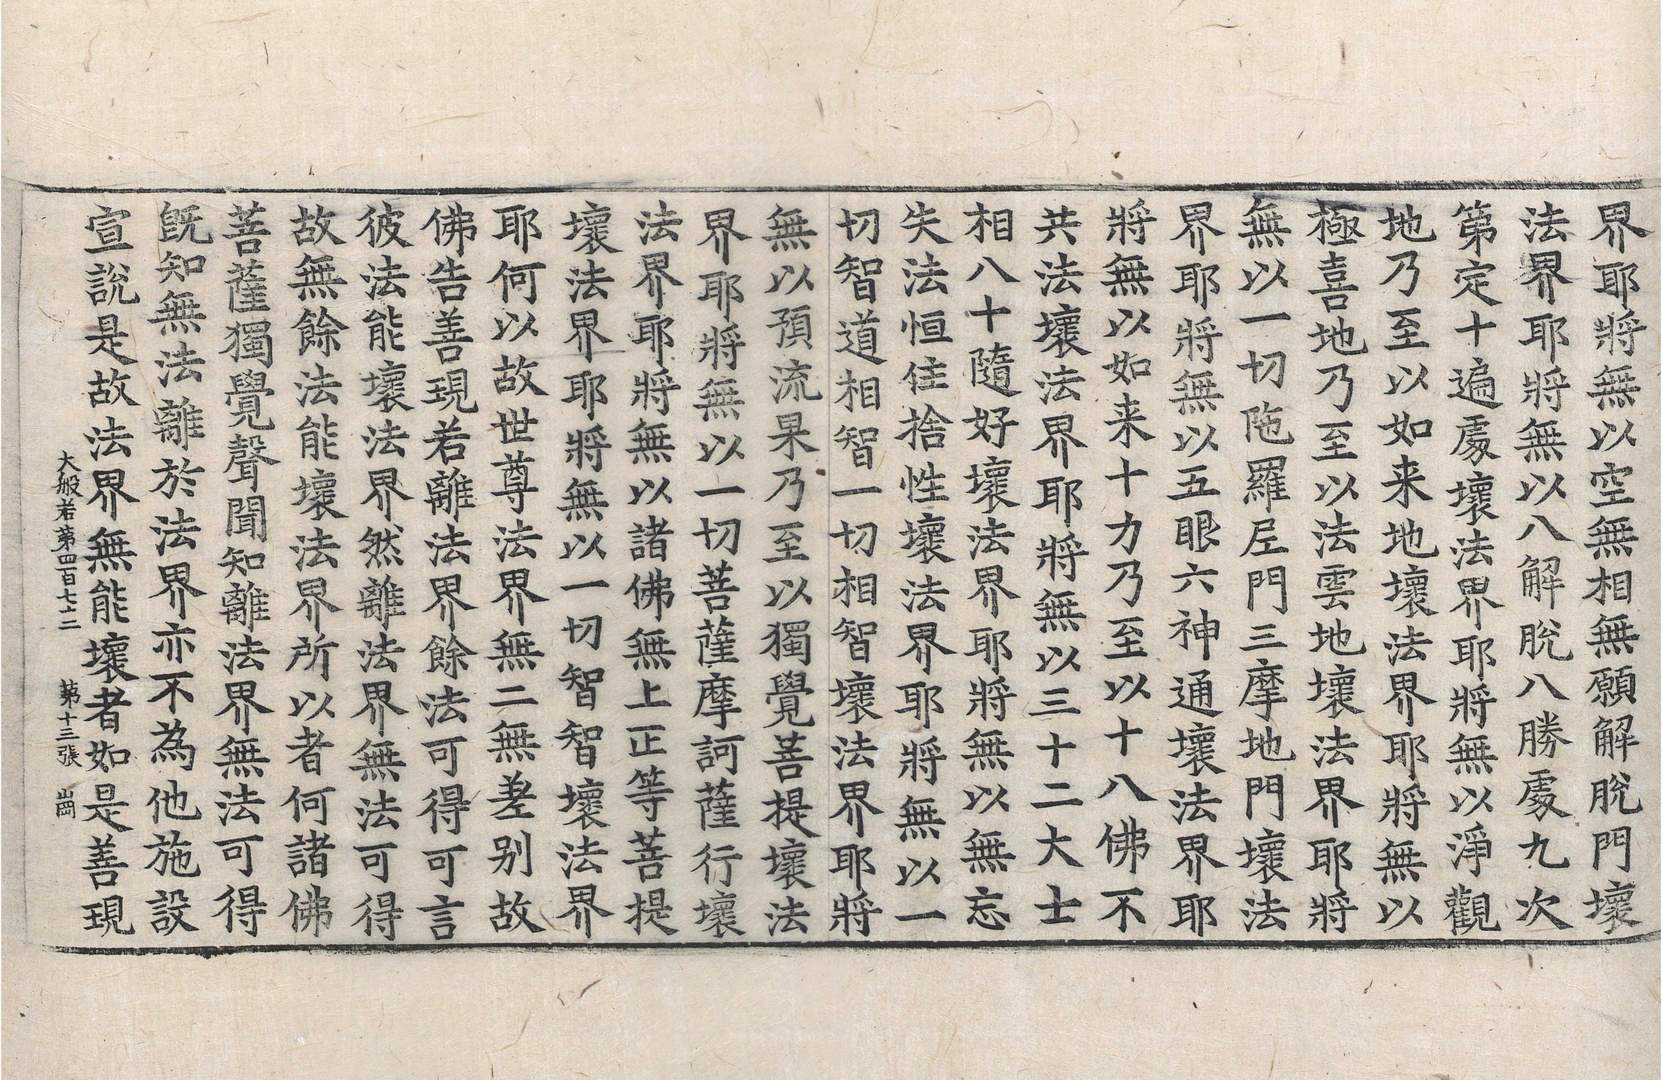 界耶將無以空無相無願解脫門壞
法界耶將無以八解脫八勝處九次
第定十遍處壞法界耶將無以淨觀
地乃至以如来地壞法界耶將無以
極喜地乃至以法雲地壞法界耶將
無以一切陁羅尼門三摩地門壞法
界耶將無以五眼六神通壞法界耶
將無以如来十力乃至以十八佛不
共法壞法界耶將無以三十二大士
相八十隨好壞法界耶將無以無忘
失法恒住捨性壞法界耶將無以一
切智道相智一切相智壞法界耶將
無以預流果乃至以獨覺菩提壞法
界耶將無以一切菩薩摩訶薩行壞
法界耶將無以諸佛無上正等菩提
壞法界耶將無以一切智智壞法界
耶何以故世尊法界無二無差别故
佛告善現若離法界餘法可得可言
彼法能壞法界然離法界無法可得
故無餘法能壞法界所以者何諸佛
菩薩獨覺聲聞知離法界無法可得
旣知無法離於法界亦不為他施設
宣說是故法界無能壞者如是善現
大般若第四百七二 第十三張 崗